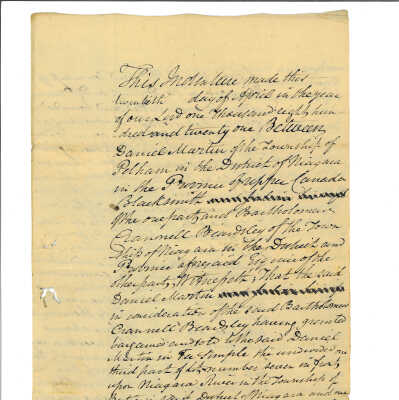 This Indenture made this
twentieth day of April in the year
of our Lord one thousand eight hun
dred and twenty one Between
Daniel Martin of the Township of
Pelham in the District of Niagara
in the Province of Upper Canada
Blacksmith
of the one part, and Bartholomew
Crannell Beardsley of the Town
ship of Niagara in the District and
Province aforesaid Esquire of the
other part, Witnesseth, That the said
Daniel Martin
in consideration of the said Bartholomew
Crannell Beardsley having granted
bargained and sold to the said Daniel
Martin in Fee Simple the undivided one
third part of Lot number seven in front
upon Niagara River in the Township of
District of Niagara and